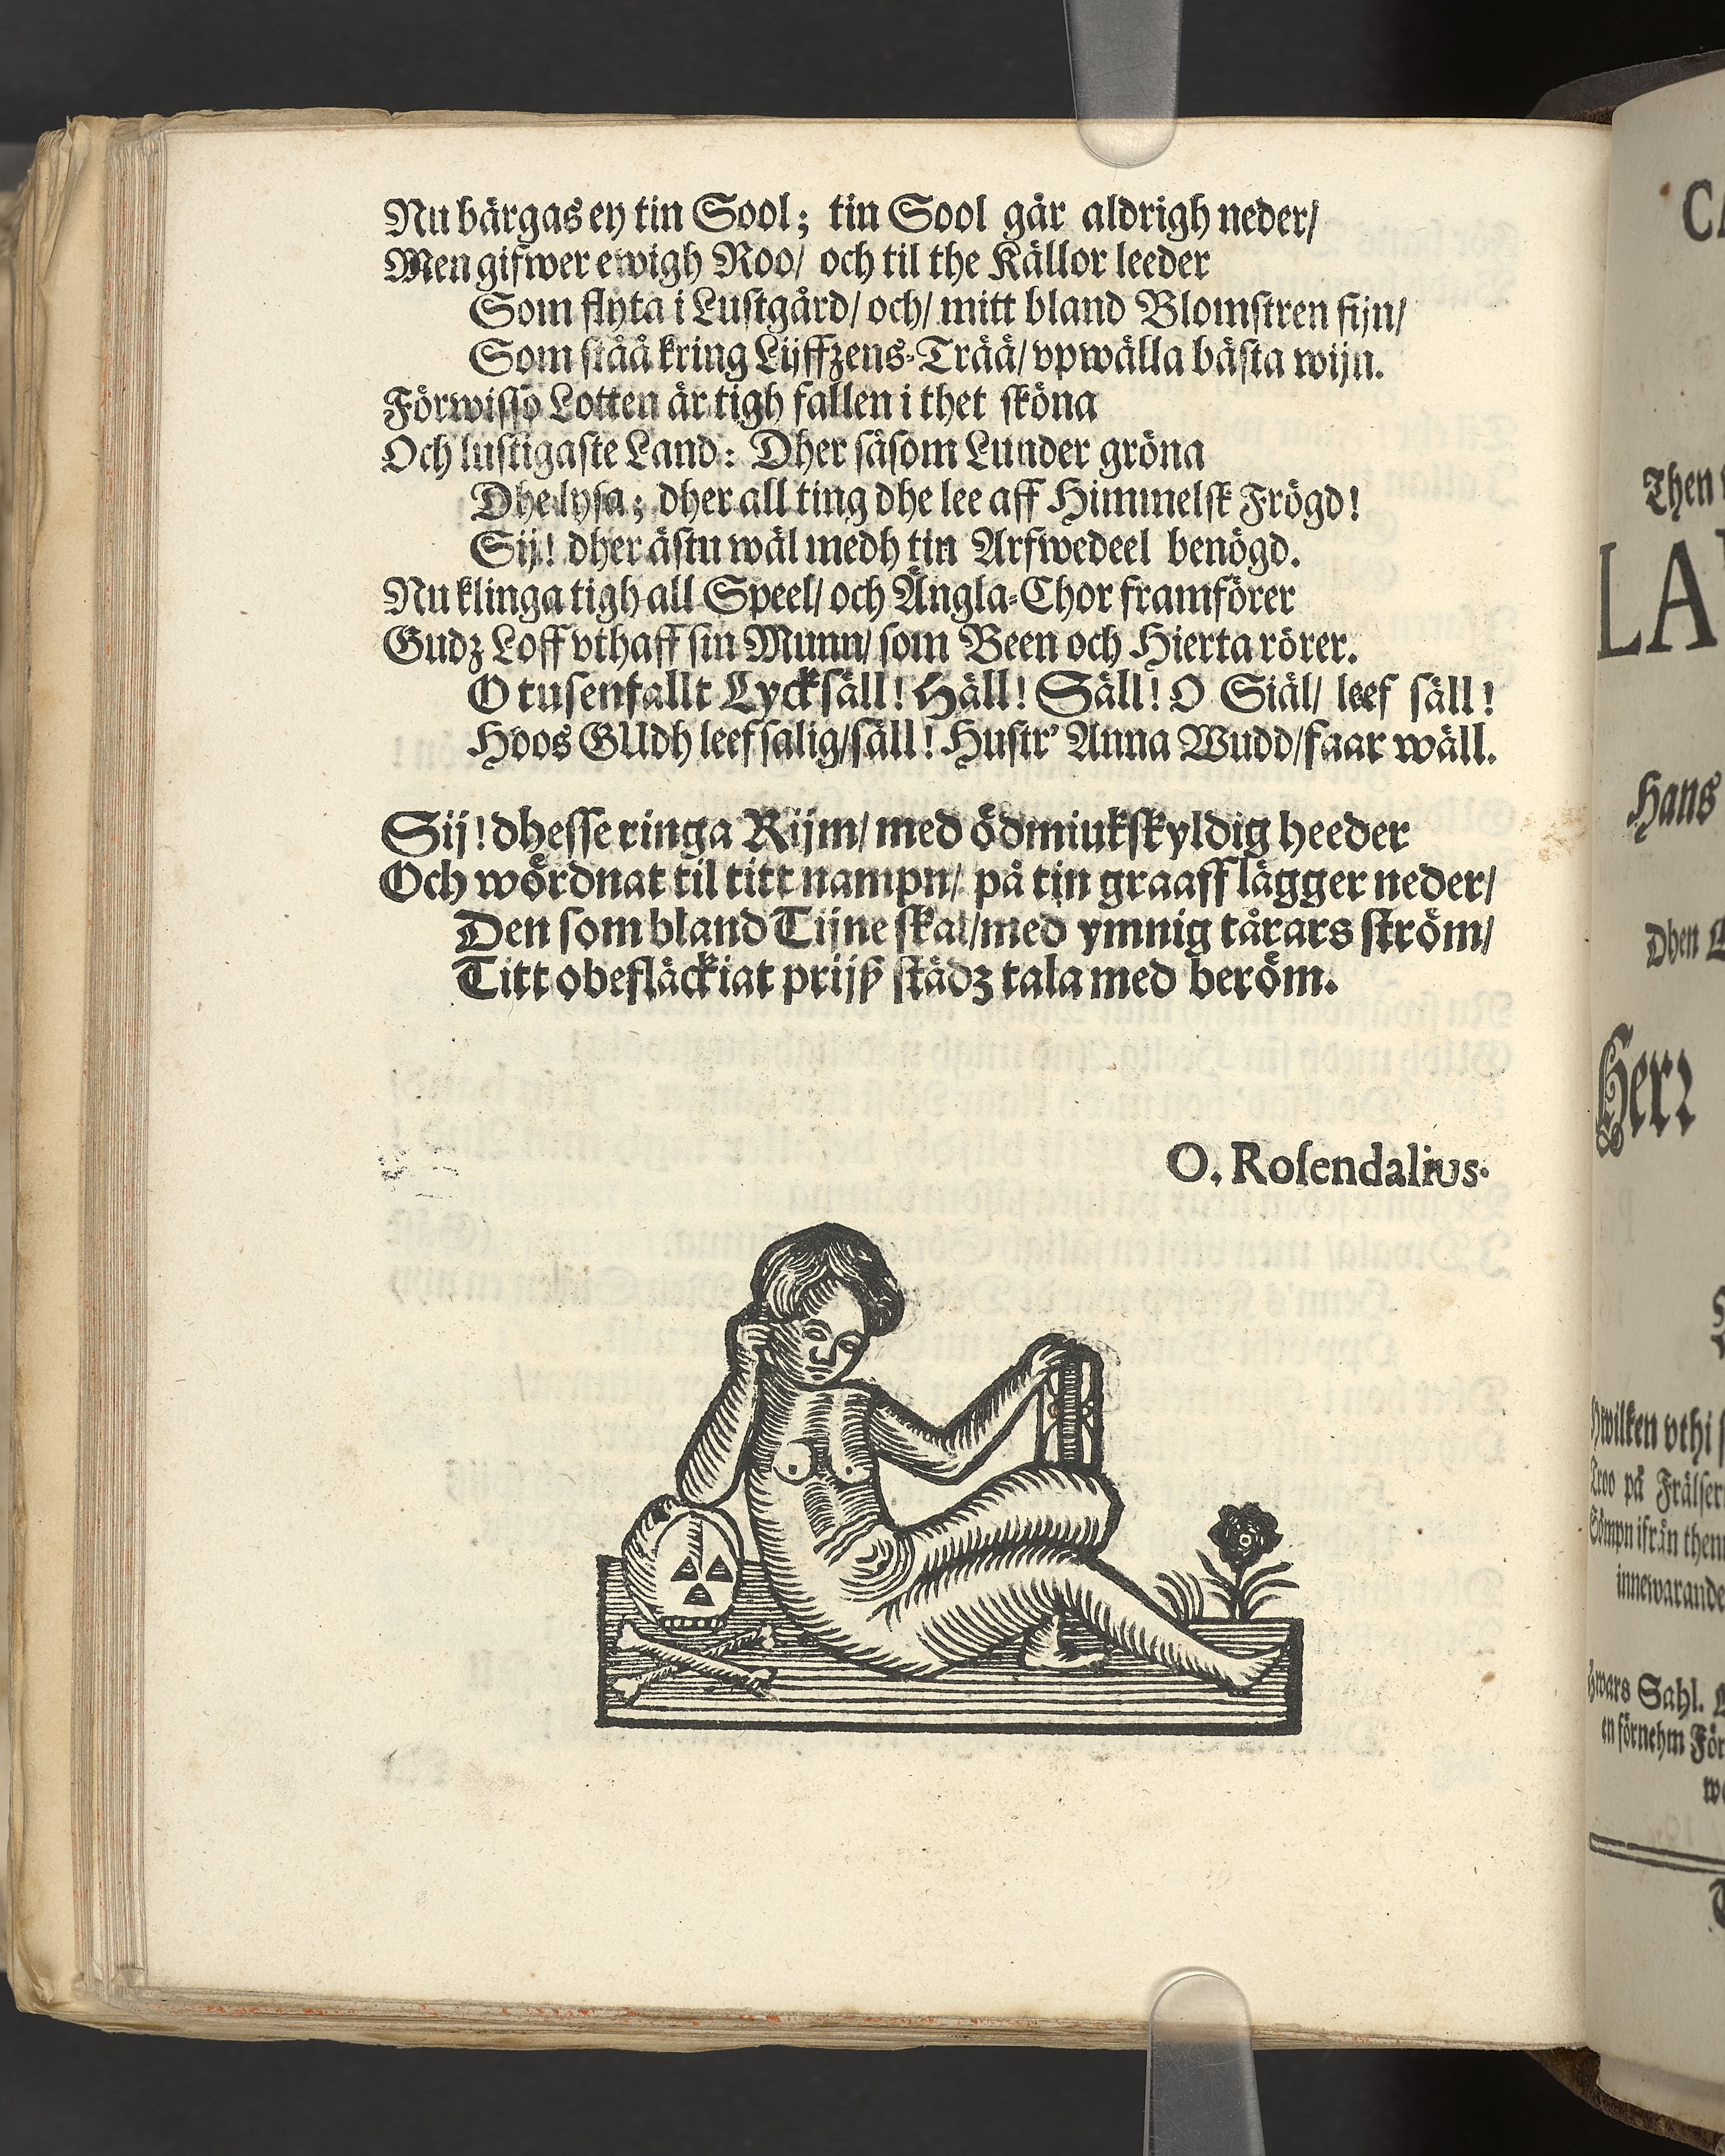 Nu bärgas ey tin Sool; tin Sool går aldrigh neder/
Men gifwer ewigh Roo/ och til the Källor leeder
Som flyta i Lustgård/ och/ mitt bland Blomstren fijn/
Som ståå kring Lijffzens-Trää/ vpwälla bästa wijn.
Förwisso Lotten är tigh fallen i thet sköna
Och lustigaste Land: Dher såsom Lunder gröna
Dhe lysa; dher all ting dhe lee aff Himmelsk Frögd!
Sij! dher ästu wäl medh tin Arfwedeel benögd.
Nu klinga tigh all Speel/ och Ängla-Chor framförer
Gudz Loff vthaff sin Munn/ som Been och Hierta rörer.
O tusenfallt Lycksäll! Häll! Säll! O Siäl/ leef säll!
Hoos GUdh leef salig/säll! Hustr' Anna Wudd/faar wäll.
Sij! dhesse ringa Rijm/ med ödmiukskyldig heeder
Och wördnat til titt nampn/ på tin graaff lägger neder/
Den som bland Tijne skal/med ymnig tårars ström/
Titt obefläckiat prijß städz tala med beröm.
O. Rosendalius.
Then
LA
Hans
Dhen
Herr
Hwilken vthi
Troo på
Sömpn ifrån them
innewarande
Hwars Sahl.
en förnehm För